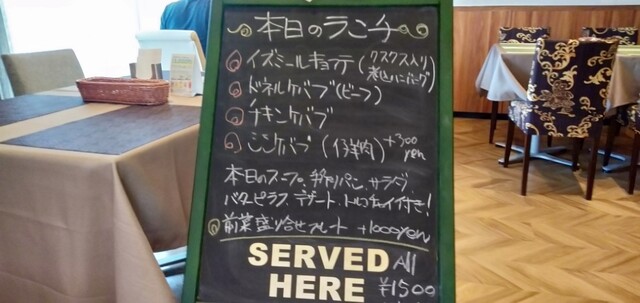 本日のランチ
イズミールキョフテ (クスクス入り
煮込ハンバーグ)
ドネルケバブ(ビーフ)
チキンケバブ
シシケバブ (仔羊肉) +300
yen
本日のスープ、手作りパン、サラダ
バターピラフ、デザート、トルコチャイ付き!
前菜盛り合せプレート +1000yen
SERVED All
HERE ¥1500